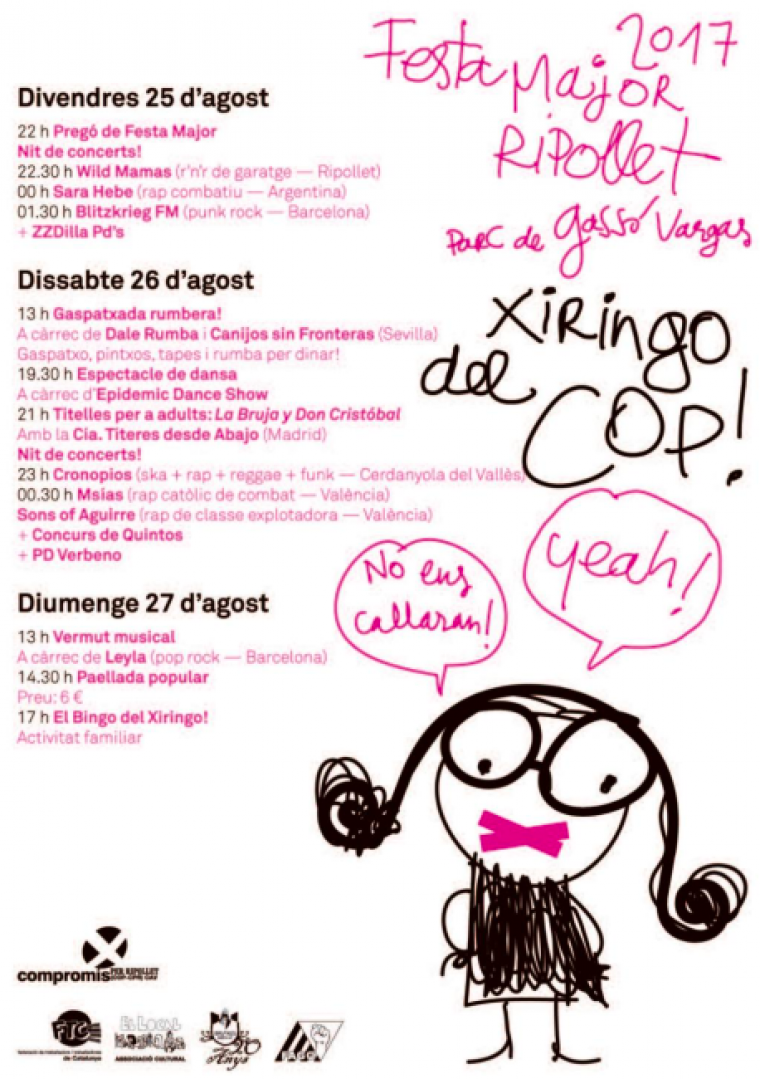 2017
Festa Major
Ripollet
Parc de Gassó Vargas
Xiringo
del COP!
Divendres 25 d'agost
22 h Pregó de Festa Major
Nit de concerts!
22.30 h Wild Mamas (r'n'r de garatge — Ripollet)
00 h Sara Hebe (rap combatiu — Argentina)
01.30 h Blitzkrieg FM (punk rock — Barcelona)
+ ZZDilla Pd's
Dissabte 26 d'agost
13 h Gaspatxada rumbera!
A càrrec de Dale Rumba i Canijos sin Fronteras (Sevilla)
Gaspatxo, pintxos, tapes i rumba per dinar!
19.30 h Espectacle de dansa
A càrrec d'Epidemic Dance Show
21 h Titelles per a adults: La Bruja y Don Cristóbal
Amb la Cia. Títeres desde Abajo (Madrid)
Nit de concerts!
23 h Cronopios (ska + rap + reggae + funk — Cerdanyola del Vallès)
00.30 h Msias (rap catòlic de combat — València)
Sons of Aguirre (rap de classe explotadora — València)
+ Concurs de Quintos
+ PD Verbeno
Diumenge 27 d'agost
13 h Vermut musical
A càrrec de Leyla (pop rock — Barcelona)
14.30 h Paellada popular
Preu: 6 €
17 h El Bingo del Xiringo!
Activitat familiar
No ens
callaran!
yeah!
compromís PER RIPOLLET
FTC
de Catalunya
EL LOCAL
ASSOCIACIÓ CULTURAL
20
Anys